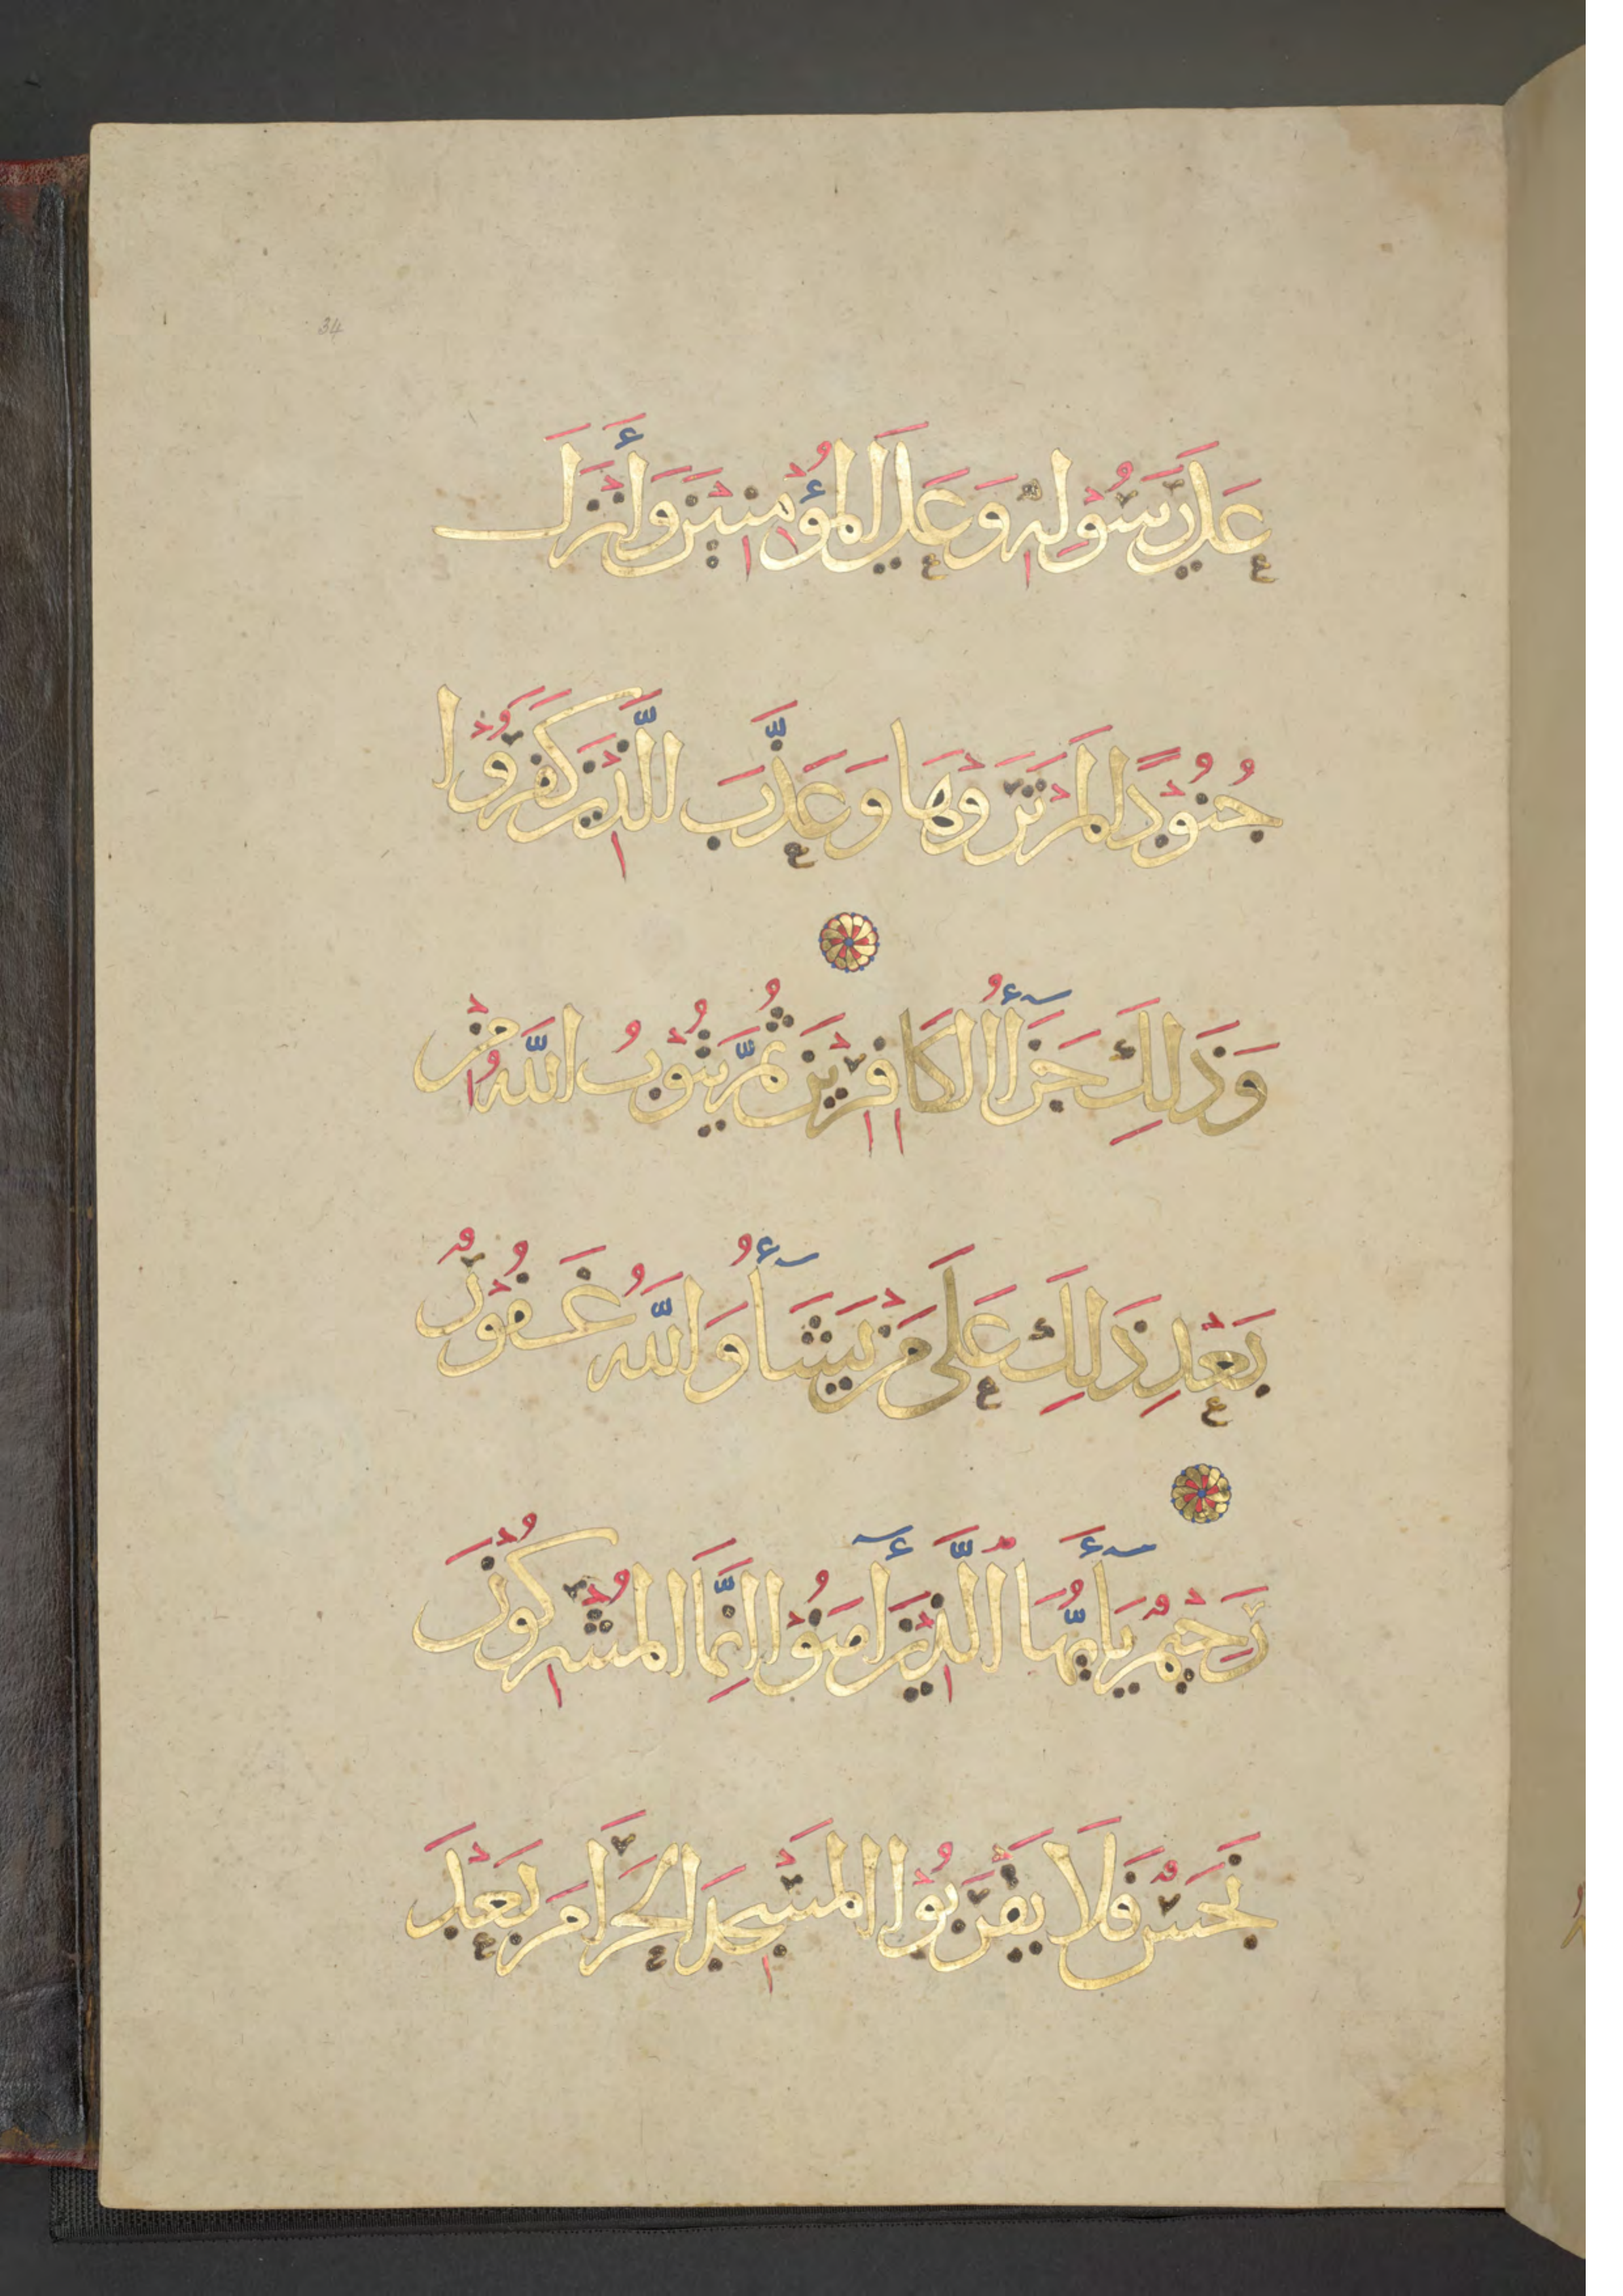 34
عَلَى رَسُوْلِهِ وَعَلَى الْمُؤْمِنِيْنَ وَأَنْزَلَ
جُنُوْدًا لَمْ تَرَوْهَا وَعَذَّبَ الَّذِيْنَ كَفَرُوْا
وَذَلِكَ جَزَآءُ الْكَافِرِيْنَ ثُمَّ يَتُوْبُ اللَّهُ مِنْ
بَعْدِ ذَلِكَ عَلَى مَنْ يَشَآءُ وَاللَّهُ غَفُوْرٌ
رَحِيْمٌ يَآأَيُّهَا الَّذِيْنَ آمَنُوْا إِنَّمَا الْمُشْرِكُوْنَ
نَجَسٌ فَلَا يَقْرَبُوْا الْمَسْجِدَ الْحَرَامَ بَعْدَ